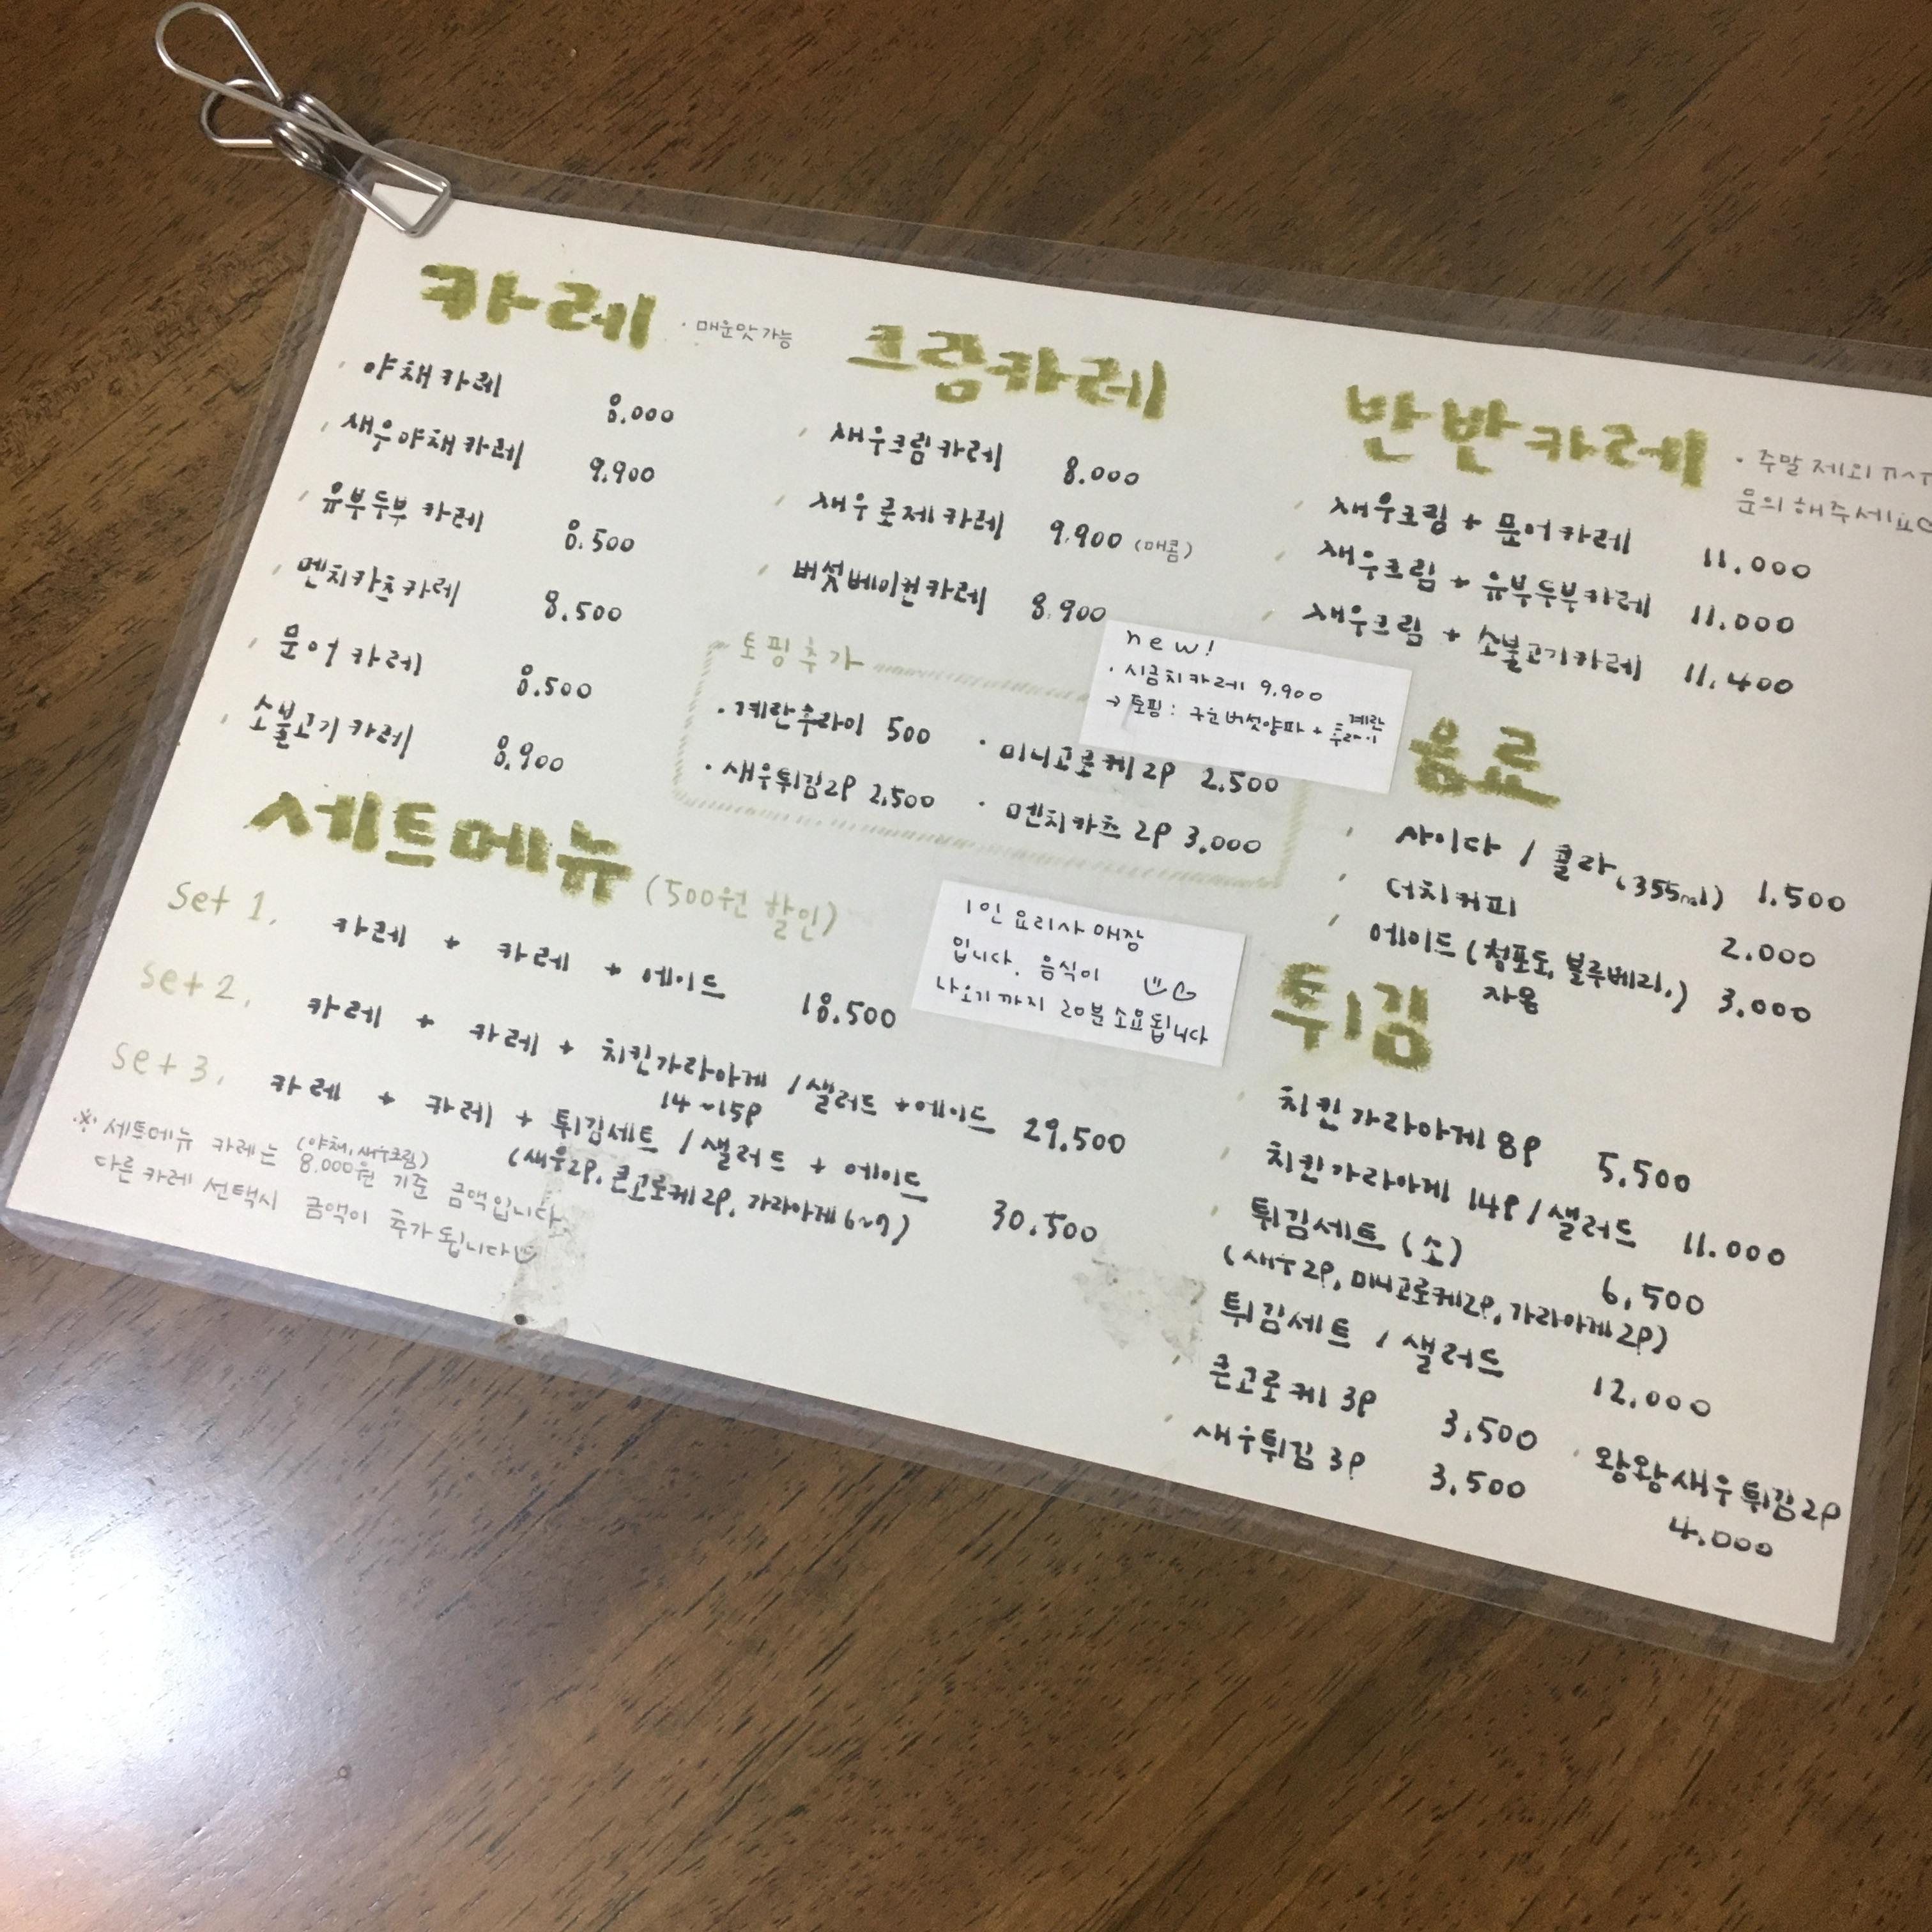 카레 · 매운맛가능
야채카레 8.000
새우야채카레 9.900
유부두부 카레 8.500
멘치카츠카레 8.500
문어 카레 8.500
소불고기 카레 8.900
크림카레
새우크림카레 8.000
새우로제카레 9.900 (매콤)
버섯베이컨카레 8.900
토핑추가
· 계란후라이 500
· 미니고로케2P 2.500
· 새우튀김2P 2.500
· 멘치카츠 2P 3.000
new!
· 시금치카레 9.900
→ 토핑 : 구운버섯양파 + 계란후라이
반반카레 · 주말 제외 ㅠㅅㅠ
문의 해주세요
새우크림 + 문어카레 11.000
새우크림 + 유부두부카레 11.000
새우크림 + 소불고기카레 11.400
음료
사이다 / 콜라 (355ml) 1.500
더치커피 2.000
에이드 (청포도, 블루베리,) 3.000
자몽
세트메뉴 (500원 할인)
set 1. 카레 + 카레 + 에이드 18.500
set 2. 카레 + 카레 + 치킨가라아게 / 샐러드 + 에이드 29.500
14~15P
set 3. 카레 + 카레 + 튀김세트 / 샐러드 + 에이드 30.500
(새우2P, 큰고로케2P, 가라아게6~7)
※ 세트메뉴 카레는 (야채,새우크림) 8.000원 기준 금액입니다.
다른 카레 선택시 금액이 추가 됩니다
1인 요리사 매장
입니다. 음식이
나오기까지 20분소요됩니다
튀김
치킨가라아게 8P 5.500
치킨가라아게 14P / 샐러드 11.000
튀김세트 (소) 6,500
(새우2P, 미니고로케2P, 가라아게2P)
튀김세트 / 샐러드 12.000
큰고로케 3P 3,500
새우튀김 3P 3,500
· 왕왕새우튀김2P
4.000